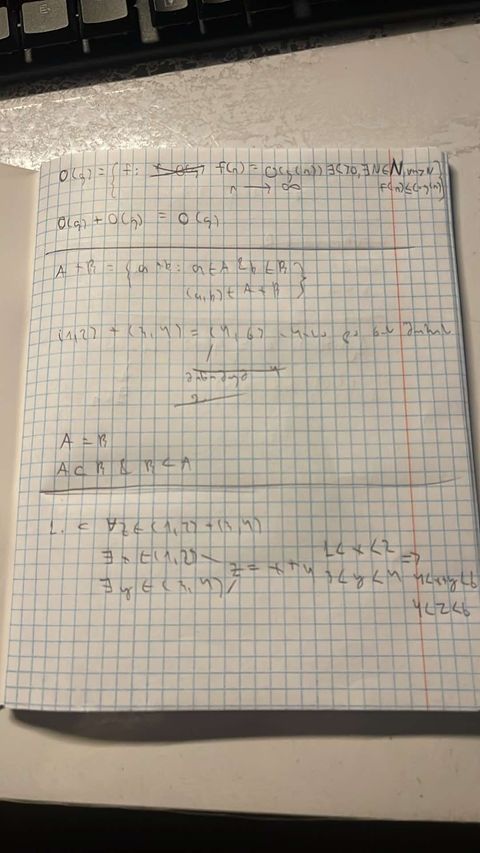 O(g) = { f: f(n) = O(g(n)) ∃C>0, ∃N∈N, n>N
n → ∞ f(n)≤C·g(n) }
O(g) + O(g) = O(g)
A + B = { a+b : a∈A & b∈B
(a,b) ∈ A+B }
(1,2) + (3,4) = (4,6)
A = B
A ⊂ B & B ⊂ A
1. ⊃ ∀z∈(1,2)+(3,4)
∃x∈(1,2) z = x+y 1<x<2 =>
∃y∈(3,4) 3<y<4 4<x+y<6
4<z<6